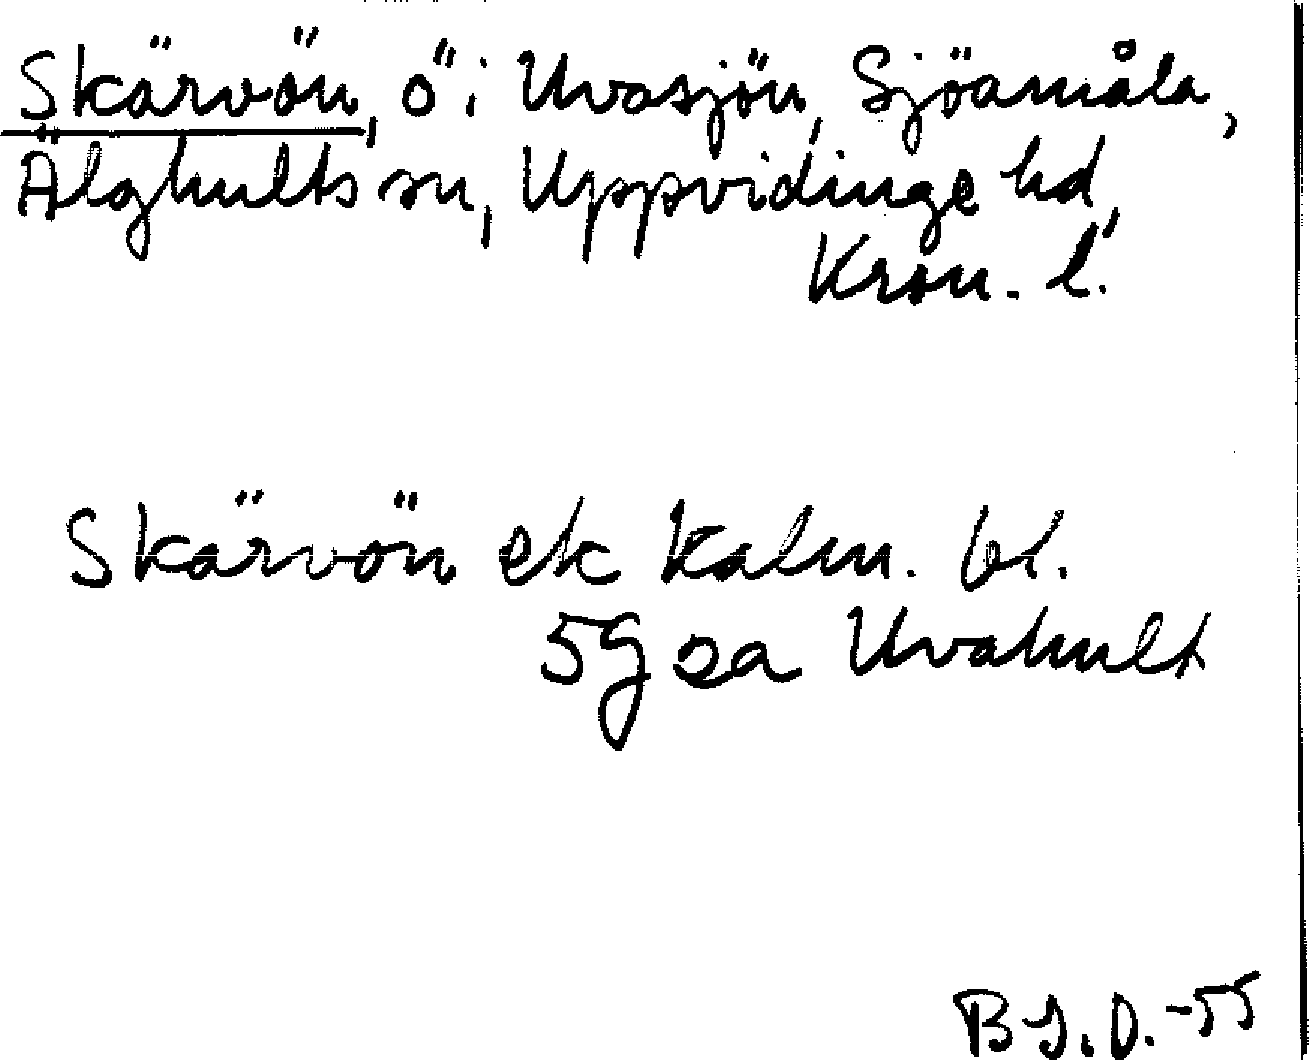 Skärvön, ö i Uvasjön, Sjöamåla,
Älghults sn, Uppvidinge hd,
Kron. l.
Skärvön ek Kalm. bl.
5g oa Uvahult
B J. D. -55